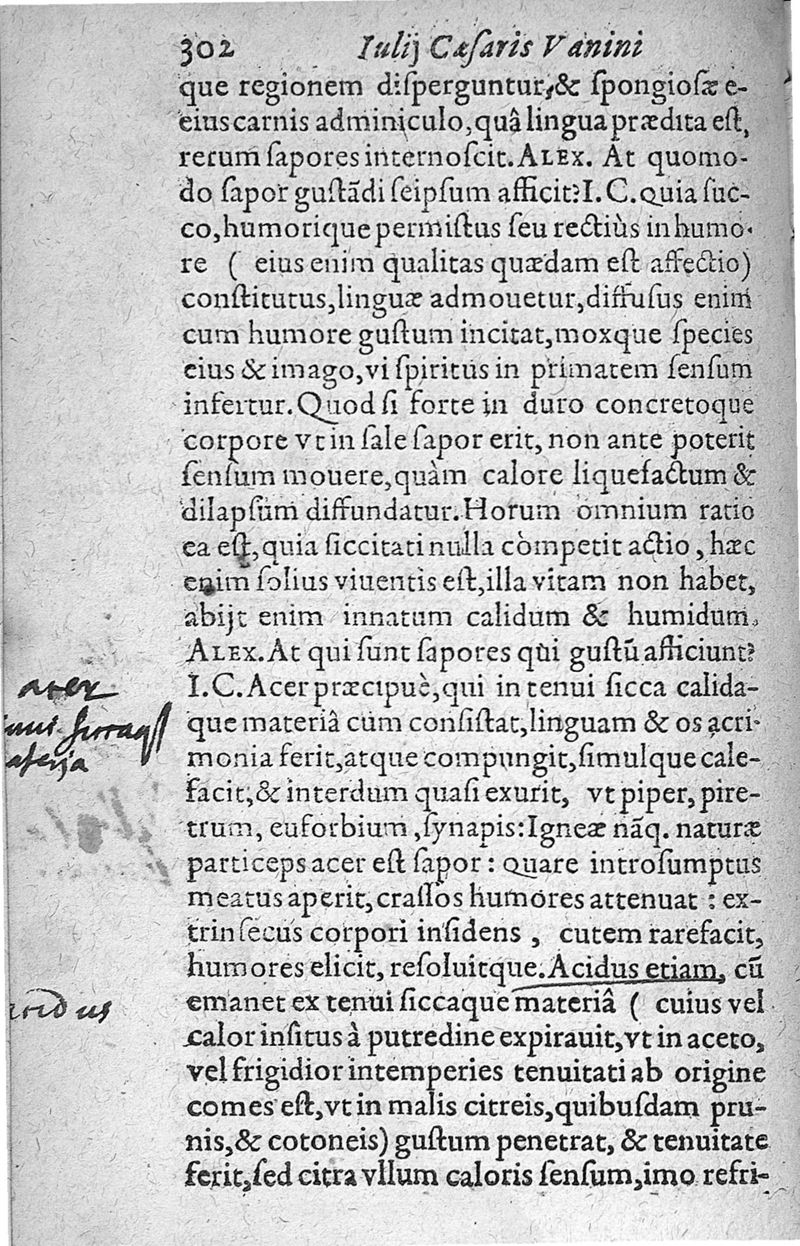 302 Iulij Cæſaris Vanini
que regionem diſperguntur,& ſpongioſæ e-
eius carnis adminiculo,quâ lingua prædita eſt,
rerum ſapores internoſcit. ALEX. At quomo-
do ſapor guſtãdi ſeipſum afficit? I. C. quia ſuc-
co, humorique permiſtus ſeu rectiùs in humo-
re ( eius enim qualitas quædam eſt affectio)
conſtitutus,linguæ admouetur,diffuſus enim
cum humore guſtum incitat,moxque ſpecies
eius & imago,vi ſpiritus in primatem ſenſum
infertur. Quod ſi forte in duro concretoque
corpore vt in ſale ſapor erit, non ante poterit
ſenſum mouere,quàm calore liquefactum &
dilapſum diffundatur. Horum omnium ratio
ea eſt,quia ſiccitati nulla competit actio, hæc
enim ſolius viuentis eſt,illa vitam non habet,
abijt enim innatum calidum & humidum.
ALEX. At qui ſunt ſapores qui guſtũ afficiunt?
acer
I. C. Acer præcipuè,qui in tenui ſicca calida-
que materiâ cùm conſiſtat,linguam & os acri-
monia ferit,atque compungit,ſimulque cale-
facit,& interdum quaſi exurit, vt piper, pire-
trum, euforbium, ſynapis: Igneæ nãq. naturæ
particeps acer eſt ſapor : quare introſumptus
meatus aperit,craſſos humores attenuat : ex-
trinſecus corpori inſidens , cutem rarefacit,
humores elicit, reſoluitque. Acidus etiam, cũ
emanet ex tenui ſiccaque materiâ ( cuius vel
calor inſitus à putredine expirauit,vt in aceto,
vel frigidior intemperies tenuitati ab origine
comes eſt,vt in malis citreis,quibuſdam pru-
nis,& cotoneis) guſtum penetrat, & tenuitate
ferit,ſed citra vllum caloris ſenſum,imo refri-